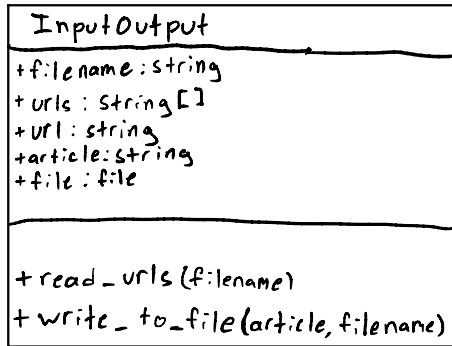 InputOutput
+filename:string
+urls:string[]
+url:string
+article:string
+file:file
+read_urls(filename)
+write_to_file(article, filename)